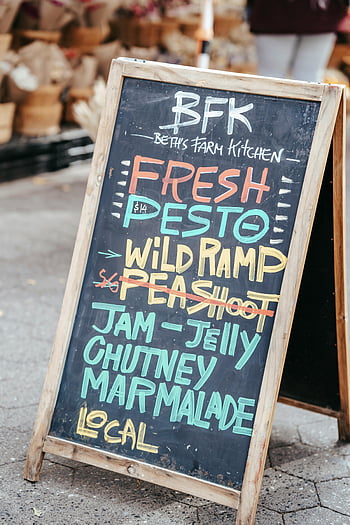 BFK
BETH'S FARM KITCHEN
FRESH
$14 PESTO
WiLD RAMP
PEASHOOT
JAM - JELLY
CHUTNEY
MARMALADE
LOCAL